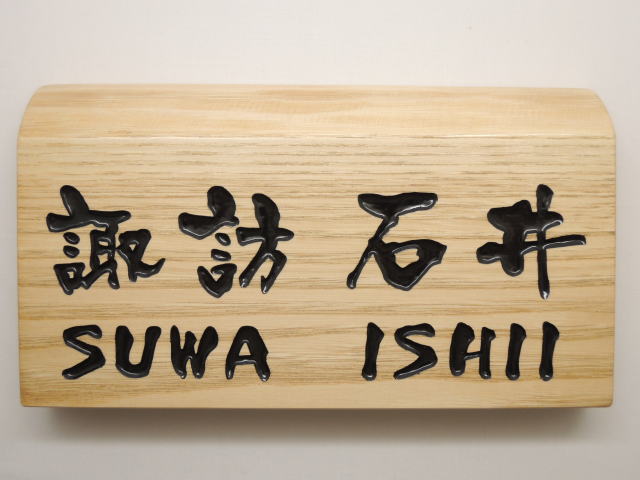 諏訪 石井
SUWA ISHII